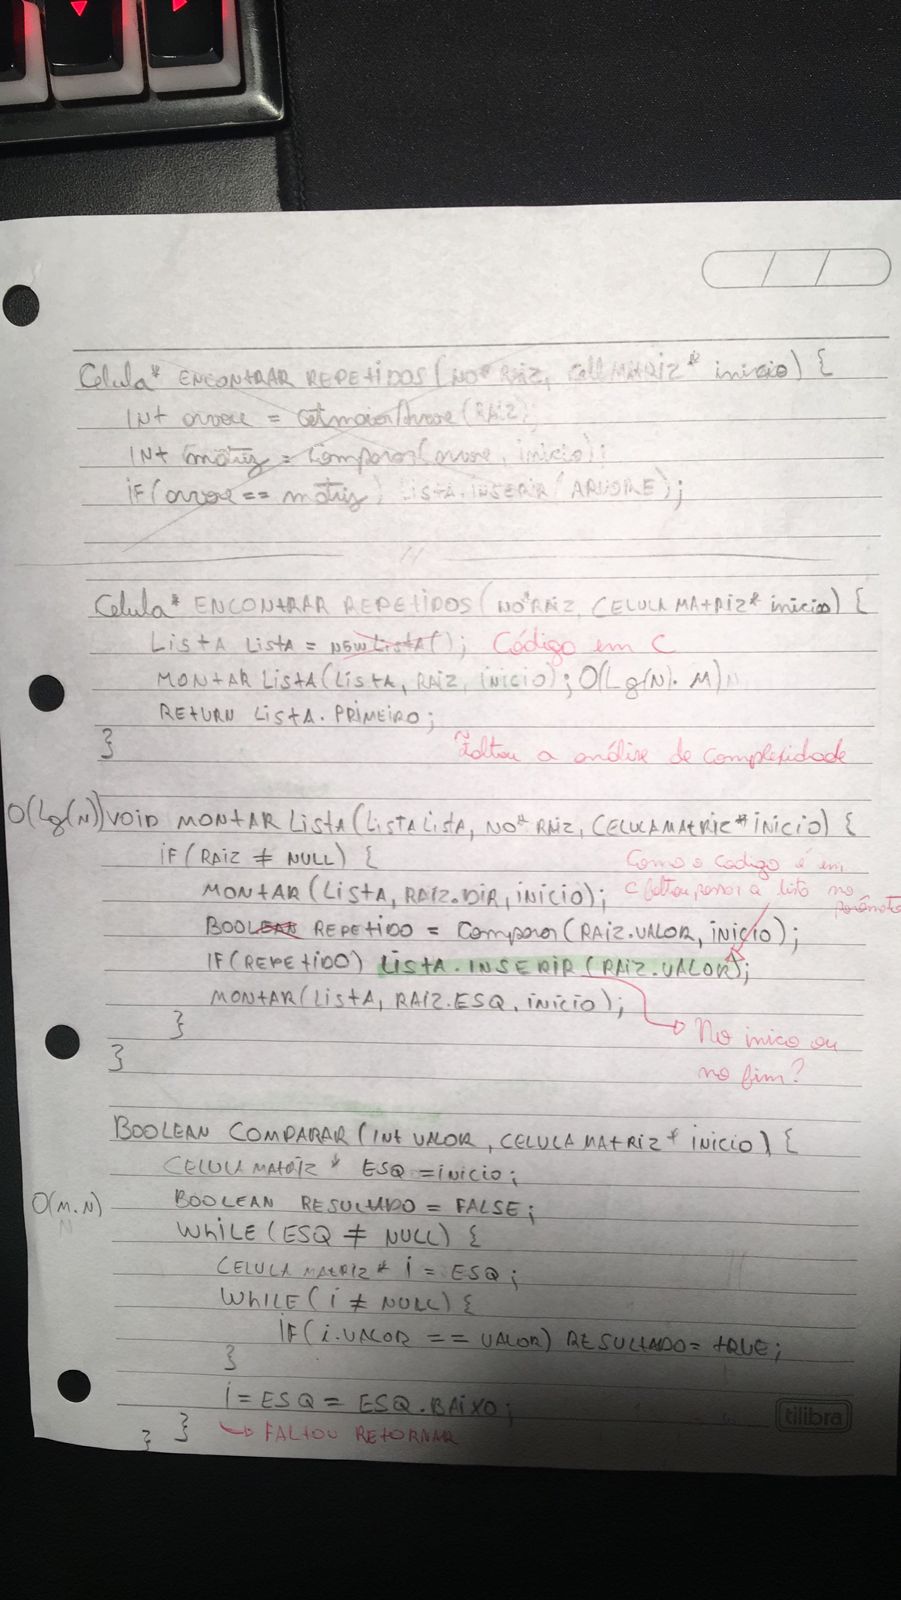 Celula* ENCONTRAR REPETIDOS (NO* RAIZ, CellMATRIZ* inicio) {
INt arvore = GetmaiorArvore (RAIZ);
INt matriz = Comparar(arvore, inicio);
IF(arvore == matriz) LISTA.INSERIR (ARVORE);
Celula* ENCONTRAR REPETIDOS (NO* RAIZ, CELULA MATRIZ* inicio) {
LIStA LIStA = NEW LIStA(); Código em C
MONTAR LIStA (LIStA, RAIZ, inicio); O(Lg(N). M) N
RETURN LIStA. PRIMEIRO;
}
Faltou a análise de complexidade
O(Lg(N)) VOID MONTAR LIStA (LIStALIStA, NO* RAIZ, CELULAMATRIZ* INICIO) {
IF (RAIZ ≠ NULL) { Como o código é em
MONTAR (LIStA, RAIZ.DIR, INICIO); C faltou passar a lista no parâmetro
BOOLEAN REPETIDO = Comparar (RAIZ.VALOR, INICIO);
IF(REPETIDO) LISTA.INSERIR (RAIZ.VALOR);
MONTAR (LIStA, RAIZ.ESQ, INICIO);
} No inico ou
} no fim?
BOOLEAN COMPARAR (INt VALOR, CELULA MATRIZ* INICIO) {
CELULA MATRIZ * ESQ = INICIO;
O(M.N) BOOLEAN RESULTADO = FALSE;
N
WHILE (ESQ ≠ NULL) {
CELULA MATRIZ* i = ESQ;
WHILE (i ≠ NULL) {
IF (i.VALOR == VALOR) RESULTADO = tRUE;
}
i = ESQ = ESQ.BAIXO;
tilibra
} } → FALTOU RETORNAR